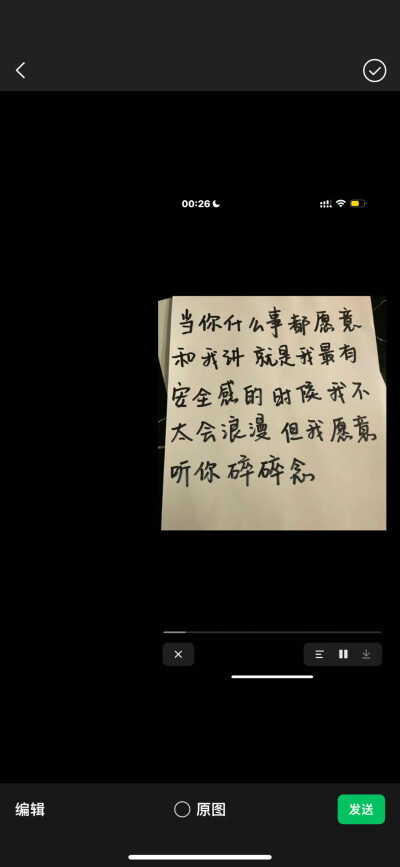 00:26
当你什么事都愿意
和我讲 就是我最有
安全感的时候 我不
太会浪漫 但我愿意
听你碎碎念
编辑
原图
发送